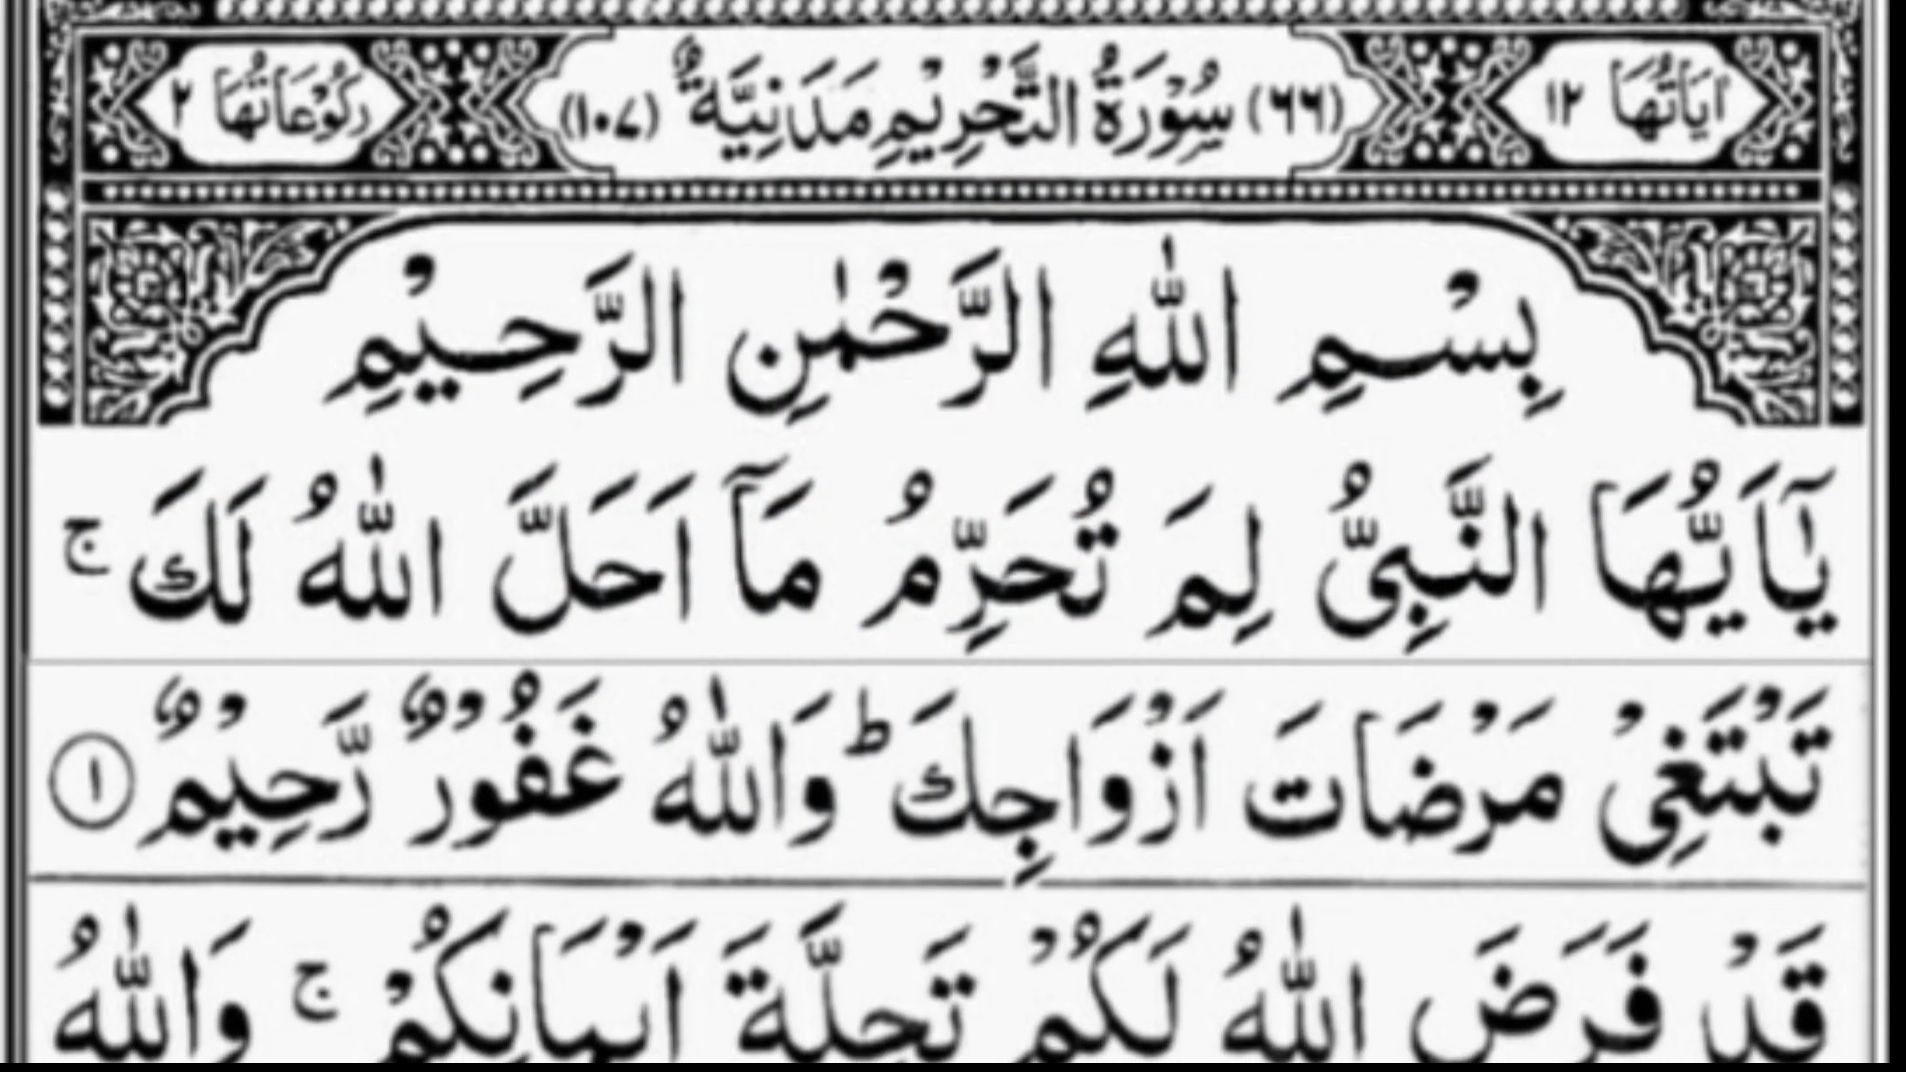 اٰيَاتُهَا ١٢ (٦٦) سُوْرَةُ التَّحْرِيْمِ مَدَنِيَّةٌ (١٠٧) رُكُوْعَاتُهَا ٢
بِسْمِ اللّٰهِ الرَّحْمٰنِ الرَّحِيْمِ
يٰٓاَيُّهَا النَّبِىُّ لِمَ تُحَرِّمُ مَآ اَحَلَّ اللّٰهُ لَكَ ۚ
تَبْتَغِىْ مَرْضَاتَ اَزْوَاجِكَ ؕ وَاللّٰهُ غَفُوْرٌ رَّحِيْمٌ ١
قَدْ فَرَضَ اللّٰهُ لَكُمْ تَحِلَّةَ اَيْمَانِكُمْ ۚ وَاللّٰهُ